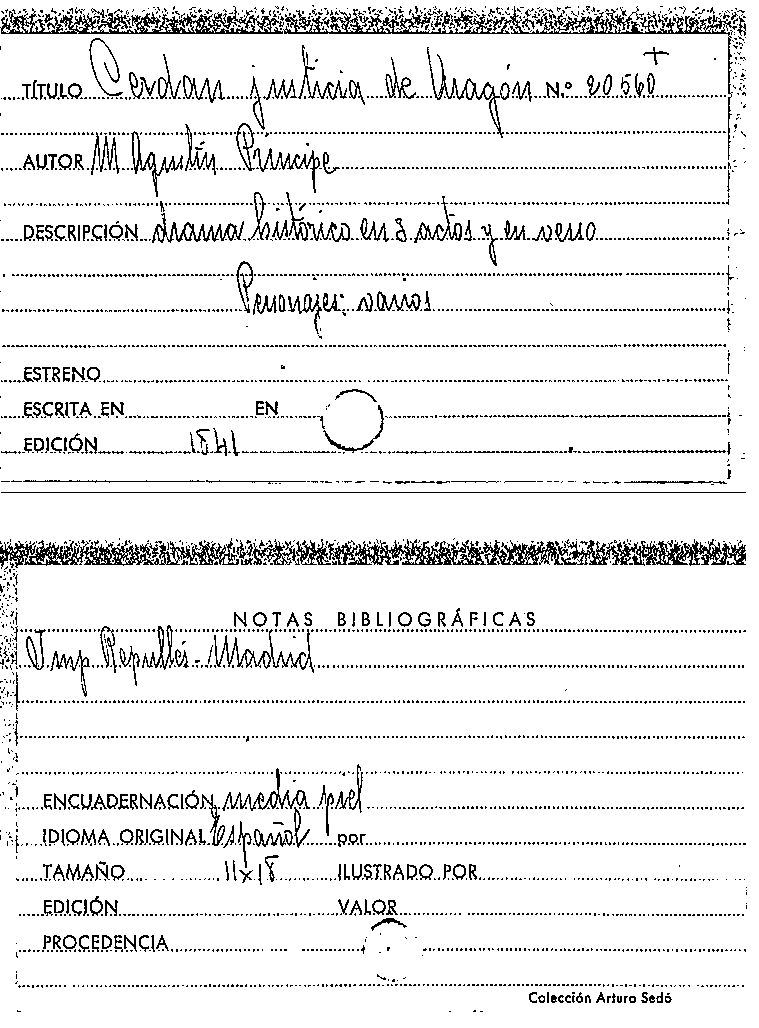 TÍTULO Cerdan justicia de Aragón N.º 20560 +
AUTOR M Agustín Príncipe
DESCRIPCIÓN drama histórico en 3 actos y en verso
Personajes: varios
ESTRENO
ESCRITA EN EN
EDICIÓN 1841
NOTAS BIBLIOGRÁFICAS
Imp Repullés - Madrid
ENCUADERNACIÓN media piel
IDIOMA ORIGINAL Español por
TAMAÑO 11x18 ILUSTRADO POR
EDICIÓN VALOR
PROCEDENCIA
Colección Arturo Sedó